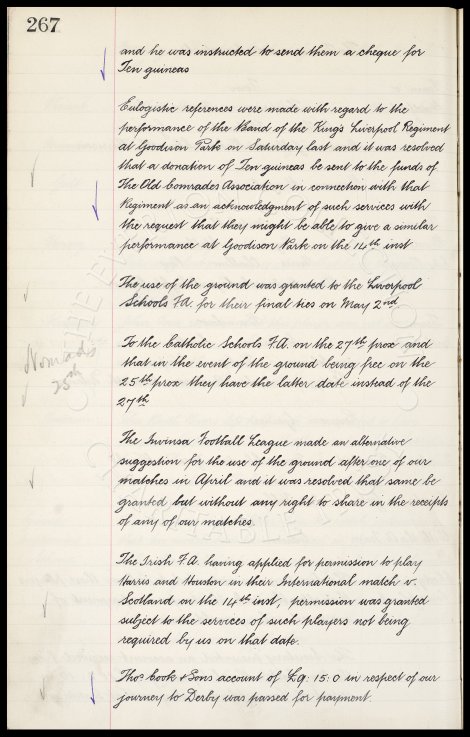 267
and he was instructed to send them a cheque for
Ten guineas
Eulogistic references were made with regard to the
performance of the Band of the King's Liverpool Regiment
at Goodison Park on Saturday last and it was resolved
that a donation of Ten guineas be sent to the funds of
the Old Comrades Association in connection with that
Regiment as an acknowledgment of such services with
the request that they might be able to give a similar
performance at Goodison Park on the 14th inst
The use of the ground was granted to the Liverpool
Schools F.A. for their final ties on May 2nd
To the Catholic Schools F.A. on the 27th prox and
that in the event of the ground being free on the
25th prox they have the latter date instead of the
27th
Nomads
25th
The Invinsa Football League made an alternative
suggestion for the use of the ground after one of our
matches in April and it was resolved that same be
granted but without any right to share in the receipts
of any of our matches.
The Irish F.A. having applied for permission to play
Harris and Houston in their International match v.
Scotland on the 14th inst, permission was granted
subject to the services of such players not being
required by us on that date.
Thos. Cook & Sons account of £9: 15: 0 in respect of our
journey to Derby was passed for payment.